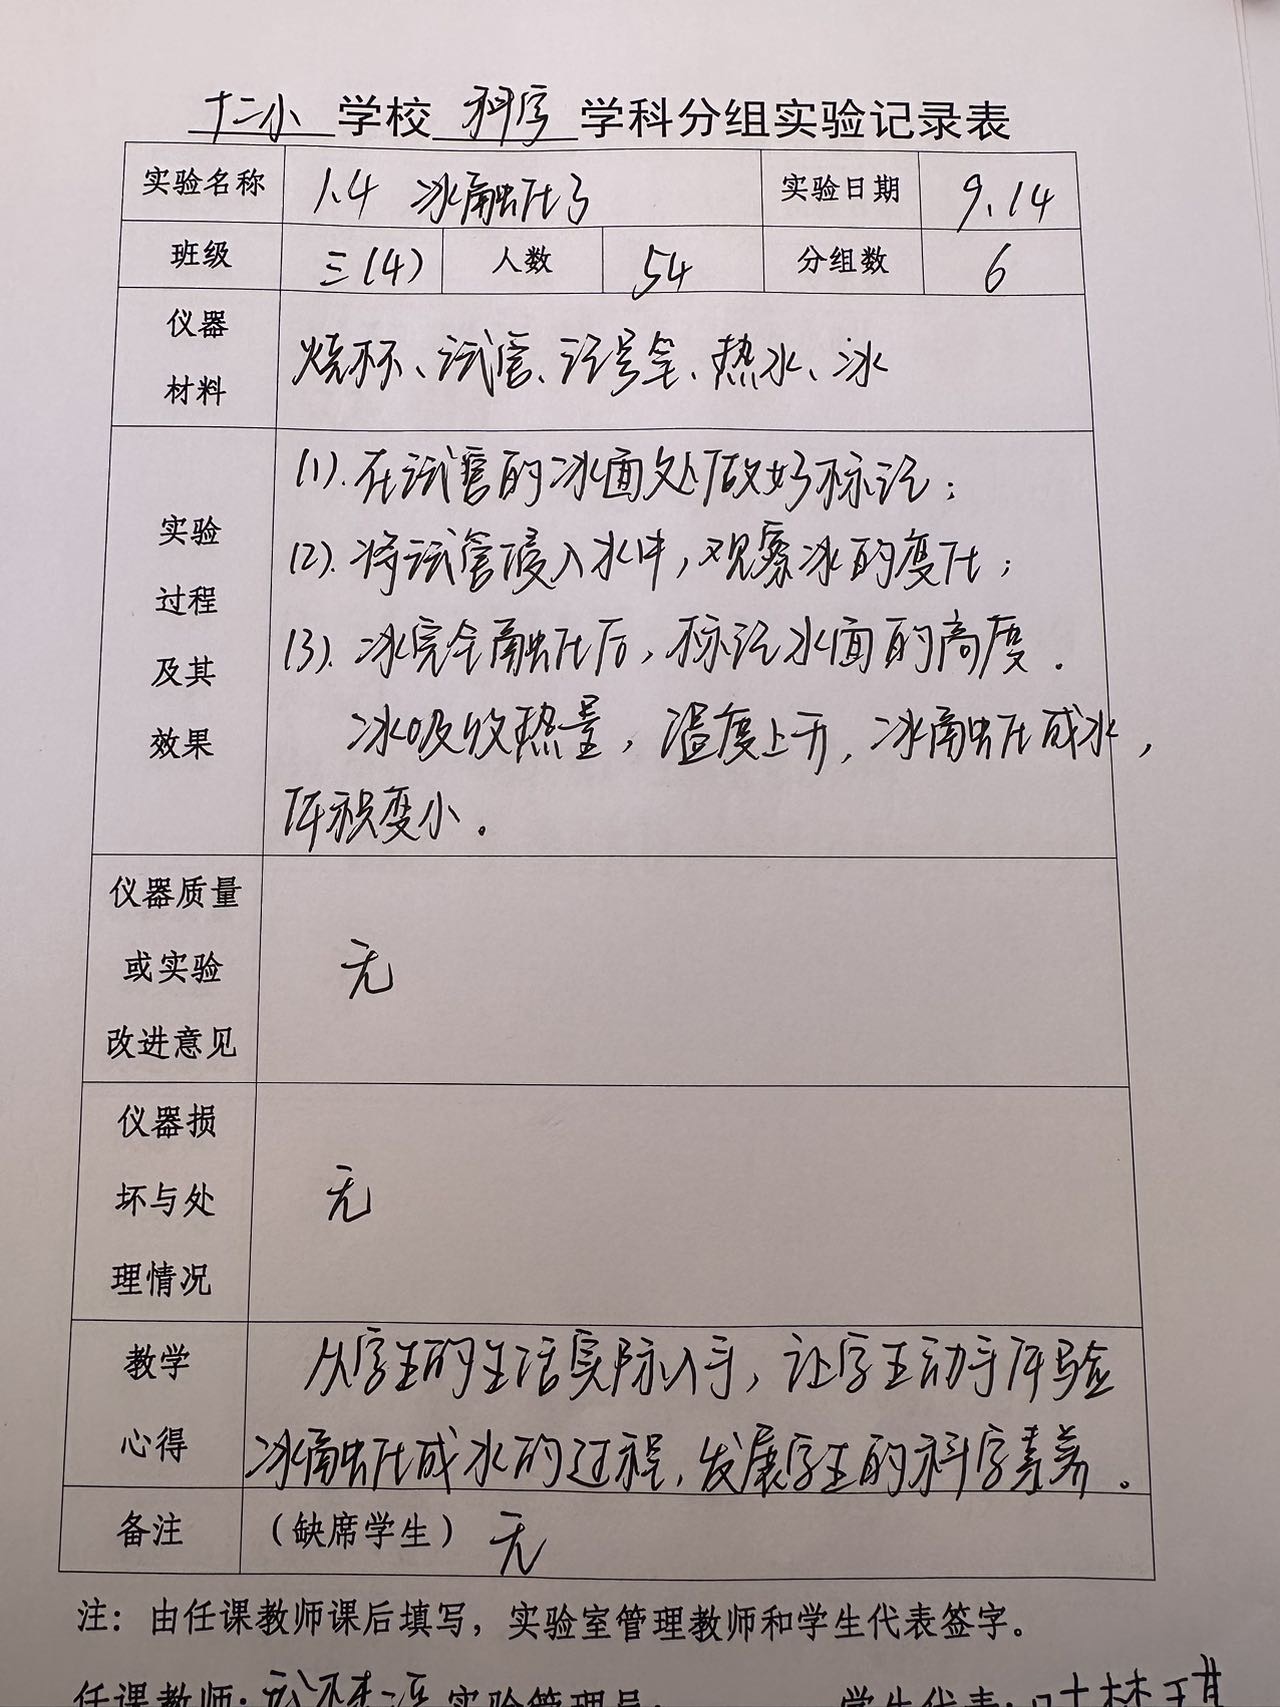 十二小 学校 科学 学科分组实验记录表
实验名称 1.4 冰融化了 实验日期 9.14
班级 三(4) 人数 54 分组数 6
仪器
材料
烧杯、试管、记号笔、热水、冰
实验
过程
及其
效果
(1).在试管的冰面处做好标记；
(2).将试管浸入水中,观察冰的变化；
(3).冰完全融化后,标记水面的高度.
冰吸收热量,温度上升,冰融化成水,
体积变小。
仪器质量
或实验
改进意见
无
仪器损
坏与处
理情况
无
教学
心得
从学生的生活实际入手,让学生动手体验
冰融化成水的过程,发展学生的科学素养。
备注 （缺席学生） 无
注：由任课教师课后填写，实验室管理教师和学生代表签字。
任课教师: 实验管理员: 学生代表: